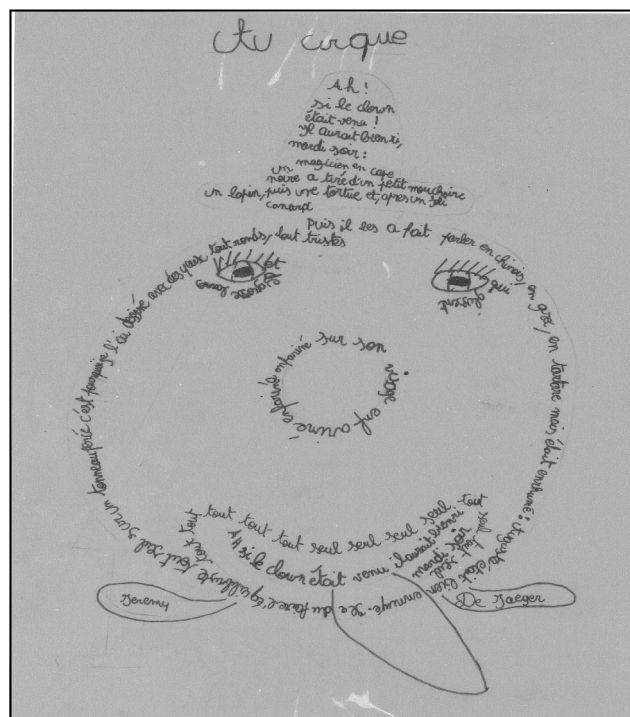 Au cirque
Ah !
si le clown
était venu !
Il aurait bien ri,
mardi soir :
un magicien en cape
noire a tiré d'un petit mouchoire
un lapin, puis une tortue et, après un joli
canard
Puis il les a fait parler en chinois, en grec, en tartare mais était enrhumé : Auguste était bien ennuyé. Il a du faire l'équilibriste tout seul sur un tonneau percé c'est pourquoi je l'ai dessiné avec des yeux tout ronds, tout tristes
et de grosses larmes
qui glissent
sur son visage enfariné enfariné enfariné
tout tout tout tout seul seul seul seul tout seul tout seul
Ah si le clown était venu il aurait bien ri mardi soir
Jeremy
De Jaeger